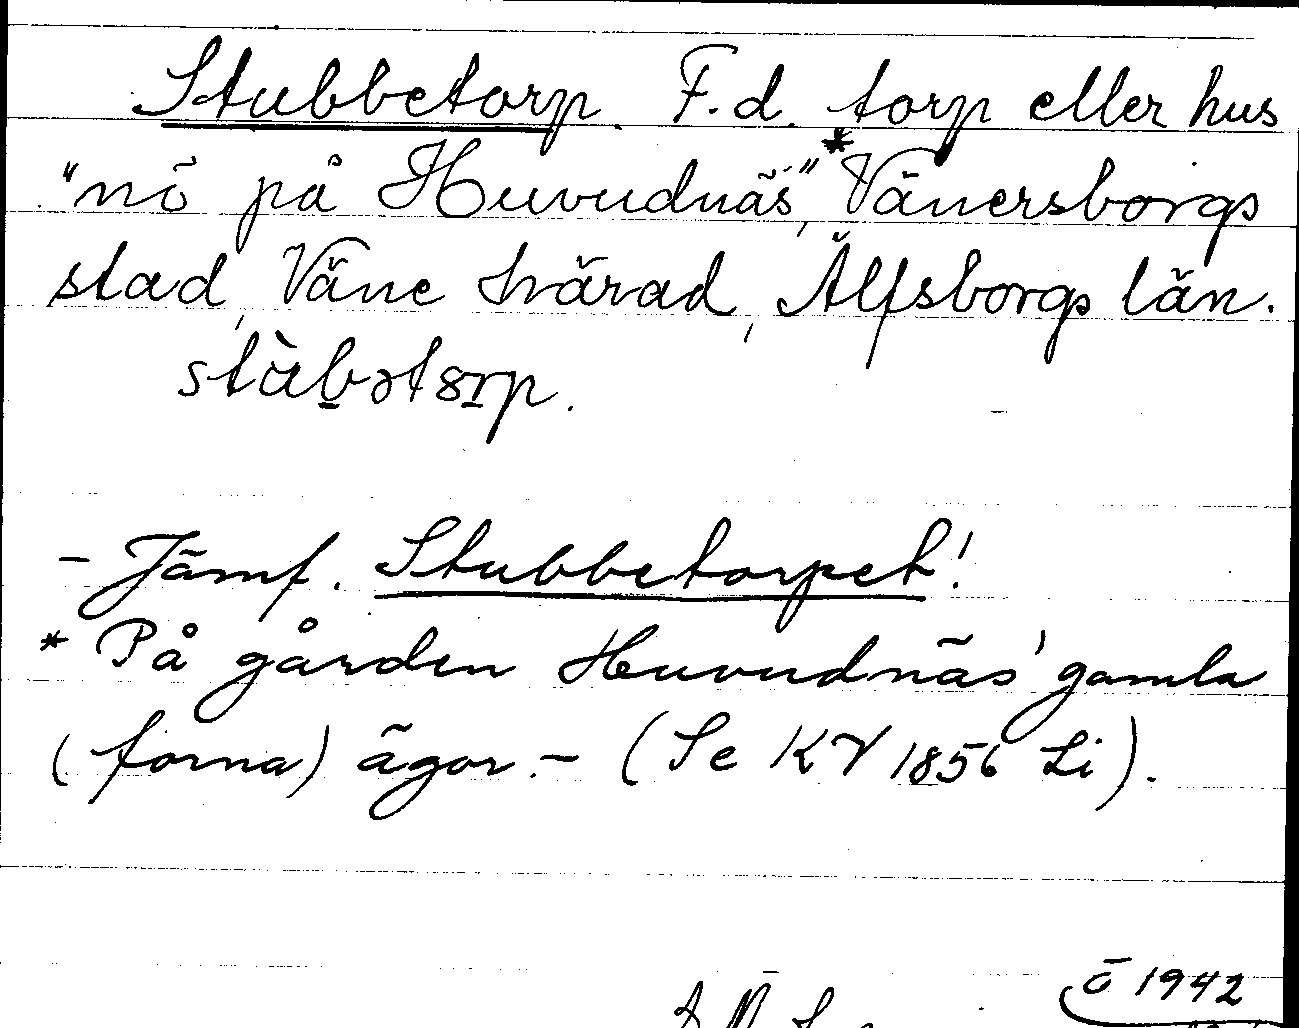 Stubbetorp. F.d. torp eller hus
"nö på Huvudnäs",* Vänersborgs
stad, Väne härad, Älfsborgs län.
stù̀bətorp.
- Jämf. Stubbetorpet!
* På gården Huvudnäs' gamla
(forna) ägor. - (Se KV 1856 Li).
ö 1942